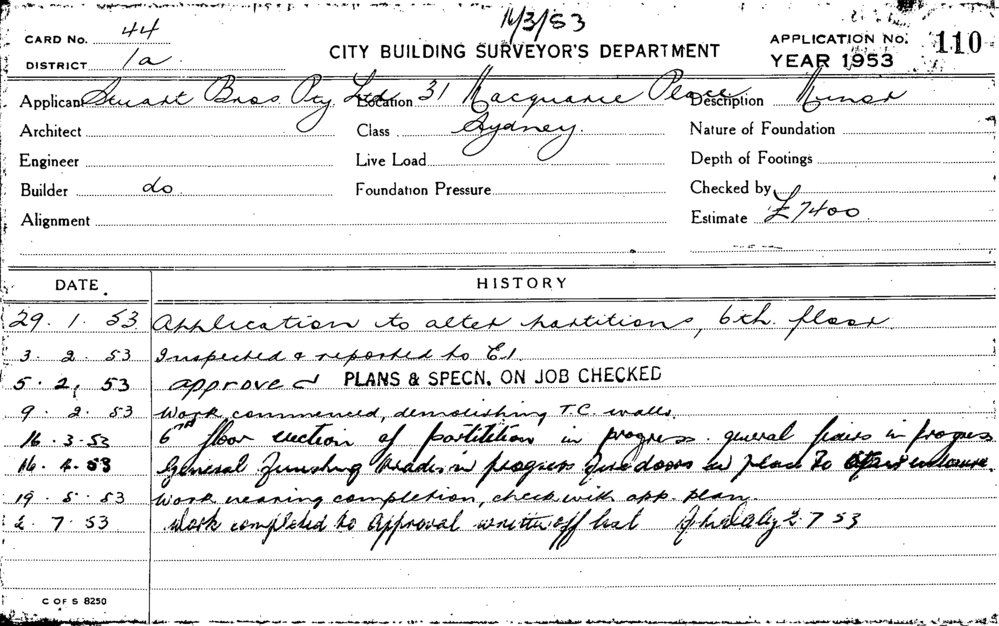 11/3/53
CARD No. 44
CITY BUILDING SURVEYOR'S DEPARTMENT
APPLICATION No. 110
DISTRICT 1a
YEAR 1953
Applicant Stuart Bros Pty Ltd Location 31 Macquarie Place Description Minor
Architect Class Sydney. Nature of Foundation
Engineer Live Load Depth of Footings
Builder do Foundation Pressure Checked by
Alignment Estimate £7400
DATE HISTORY
29. 1. 53 Application to alter partitions, 6th. floor
3. 2. 53 Inspected & reported to E.1.
5. 2. 53 approved PLANS & SPECN. ON JOB CHECKED
9. 2. 53 Work commenced, demolishing T.C. walls.
16. 3. 53 6th floor erection of partitition in progress. general in progress
16. 4. 53 General finishing trades in progress fire doors in place to stairs enclosure.
19. 5. 53 Work nearing completion, check with app. plan.
2. 7. 53 Work completed to Approval written off list 2. 7 53
C OF S 8250